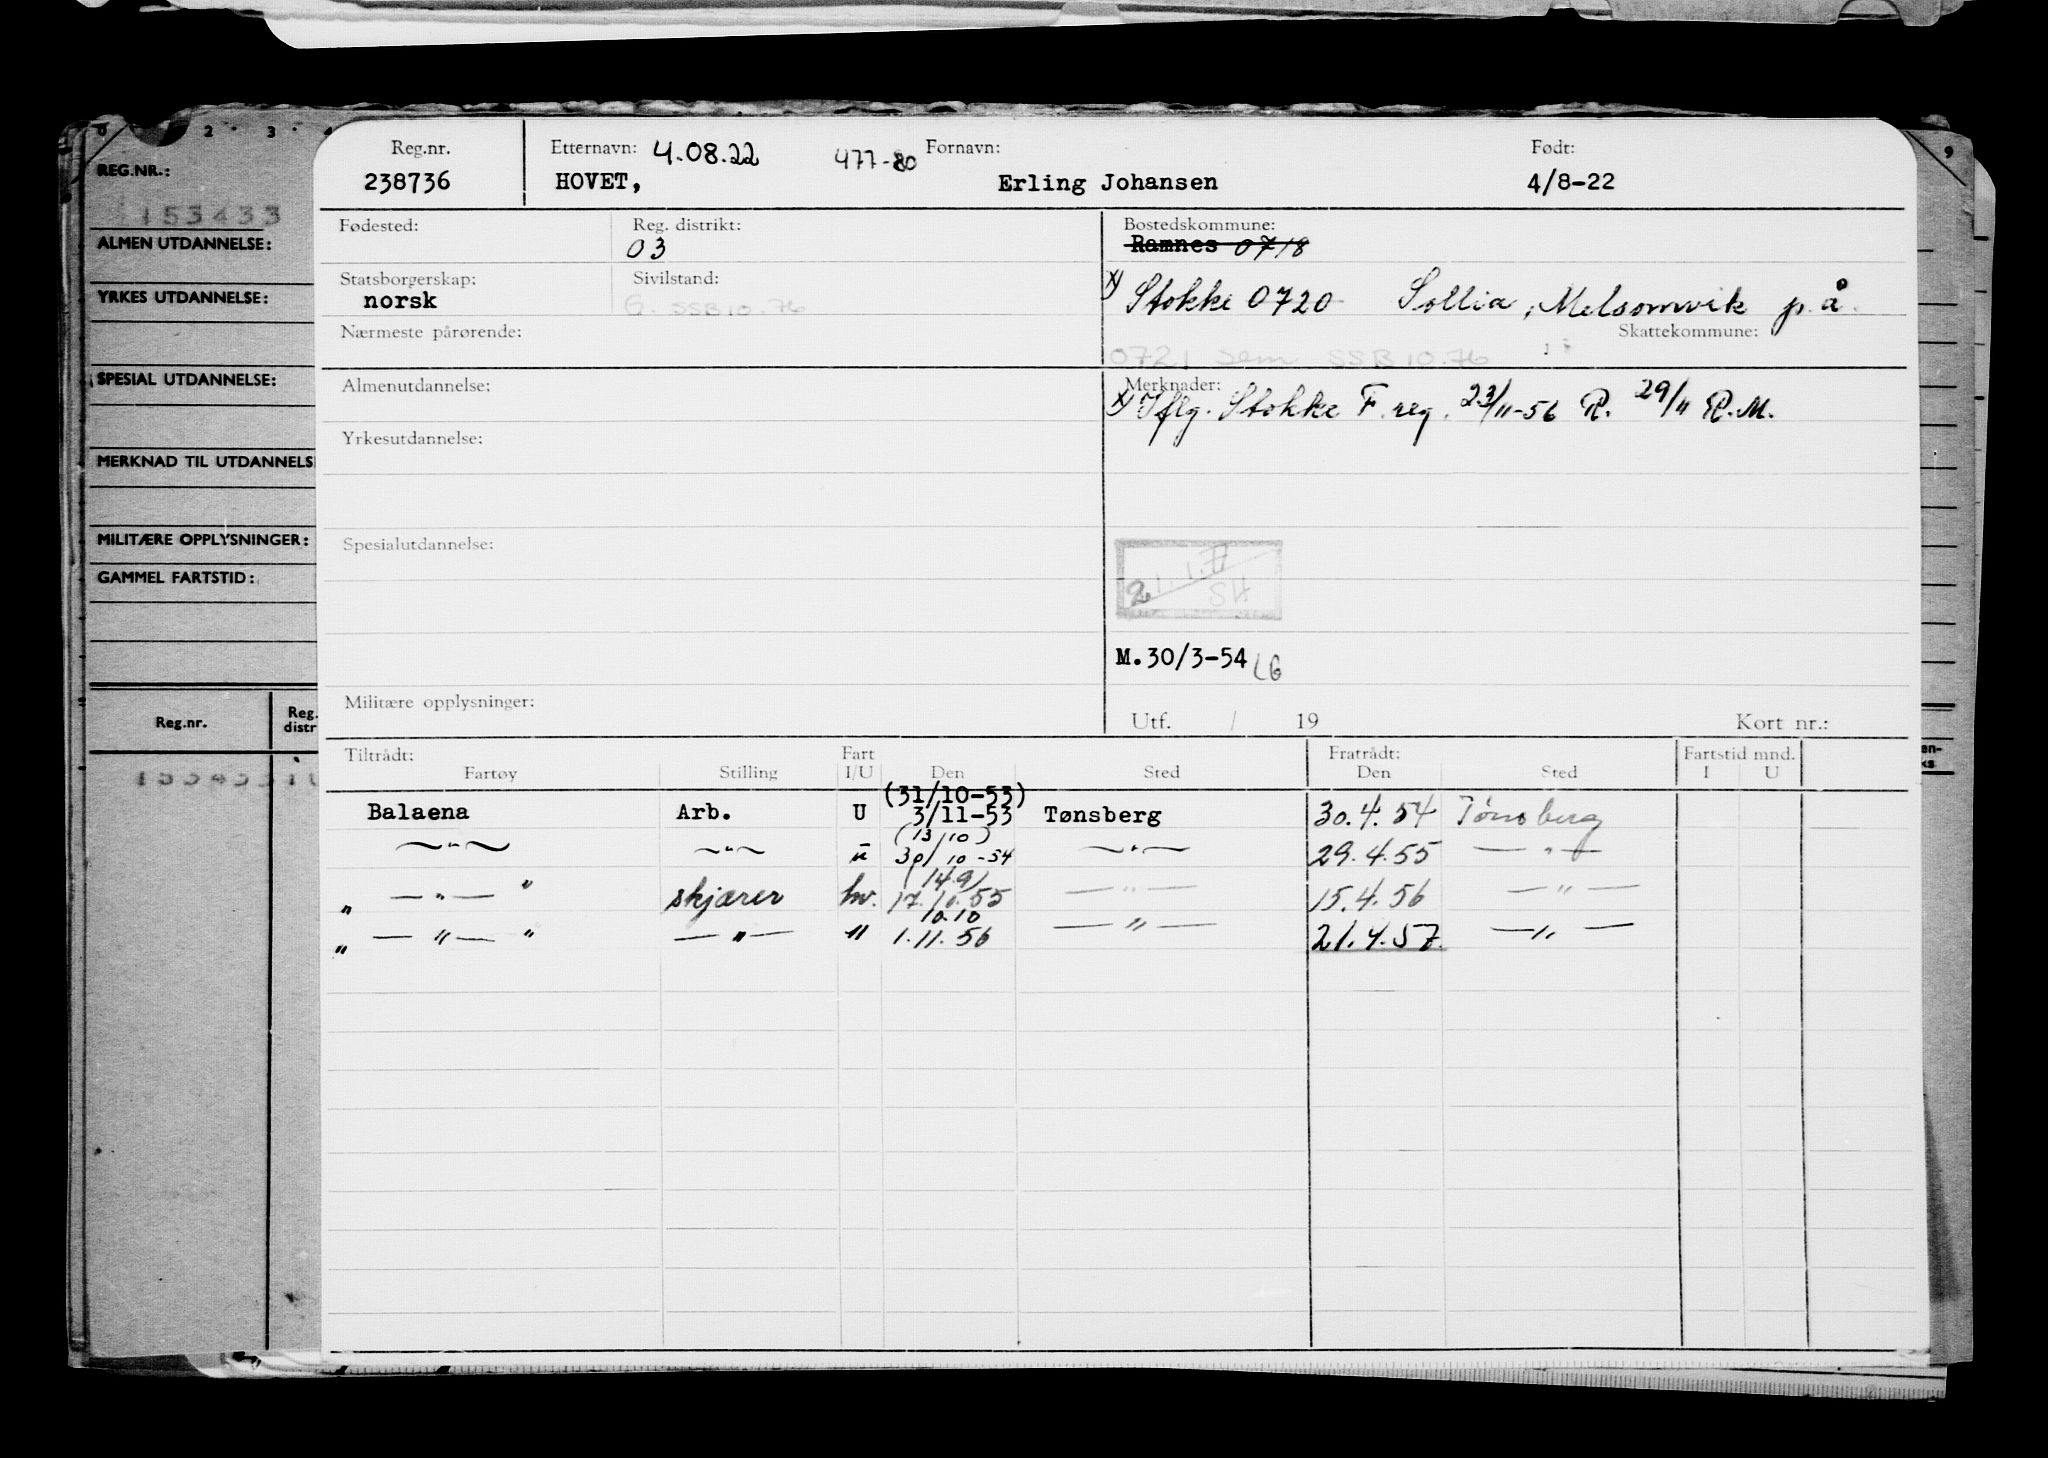 0 2 3 4 9
REG.NR.:
153433
ALMEN UTDANNELSE:
YRKES UTDANNELSE:
SPESIAL UTDANNELSE:
MERKNAD TIL UTDANNELS
MILITÆRE OPPLYSNINGER:
GAMMEL FARTSTID:
Reg.nr. Reg. distr
153433
Reg.nr. Etternavn: 4.08.22 477-80 Fornavn: Født:
238736 HOVET, Erling Johansen 4/8-22
Fødested: Reg. distrikt: Bostedskommune:
03 Ramnes 0718
Statsborgerskap: Sivilstand:
norsk G. SSB 10.76 x) Stokke 0720 Sollia, Melsomvik p.å.
Nærmeste pårørende: Skattekommune:
0721 Sem SSB 10.76
Almenutdannelse: Merknader:
x) Iflg. Stokke F.reg. 23/11-56 R. 29/11 R.M.
Yrkesutdannelse:
Spesialutdannelse:
SH
M.30/3-54 LG
Militære opplysninger: Utf. / 19 Kort nr.:
Tiltrådt: Fart Fratrådt: Fartstid mnd.
Fartøy Stilling I/U Den Sted Den Sted I U
(31/10-53)
Balaena Arb. U 3/11-53 Tønsberg 30.4.54 Tønsberg
(13/10)
—"— —"— u 30/10-54 —"— 29.4.55 —"—
(14.9)
" —"— " skjærer hv. 17.10.55 —"— 15.4.56 —"—
10.10
" —"— " —"— " 1.11.56 —"— 21.4.57. —"—